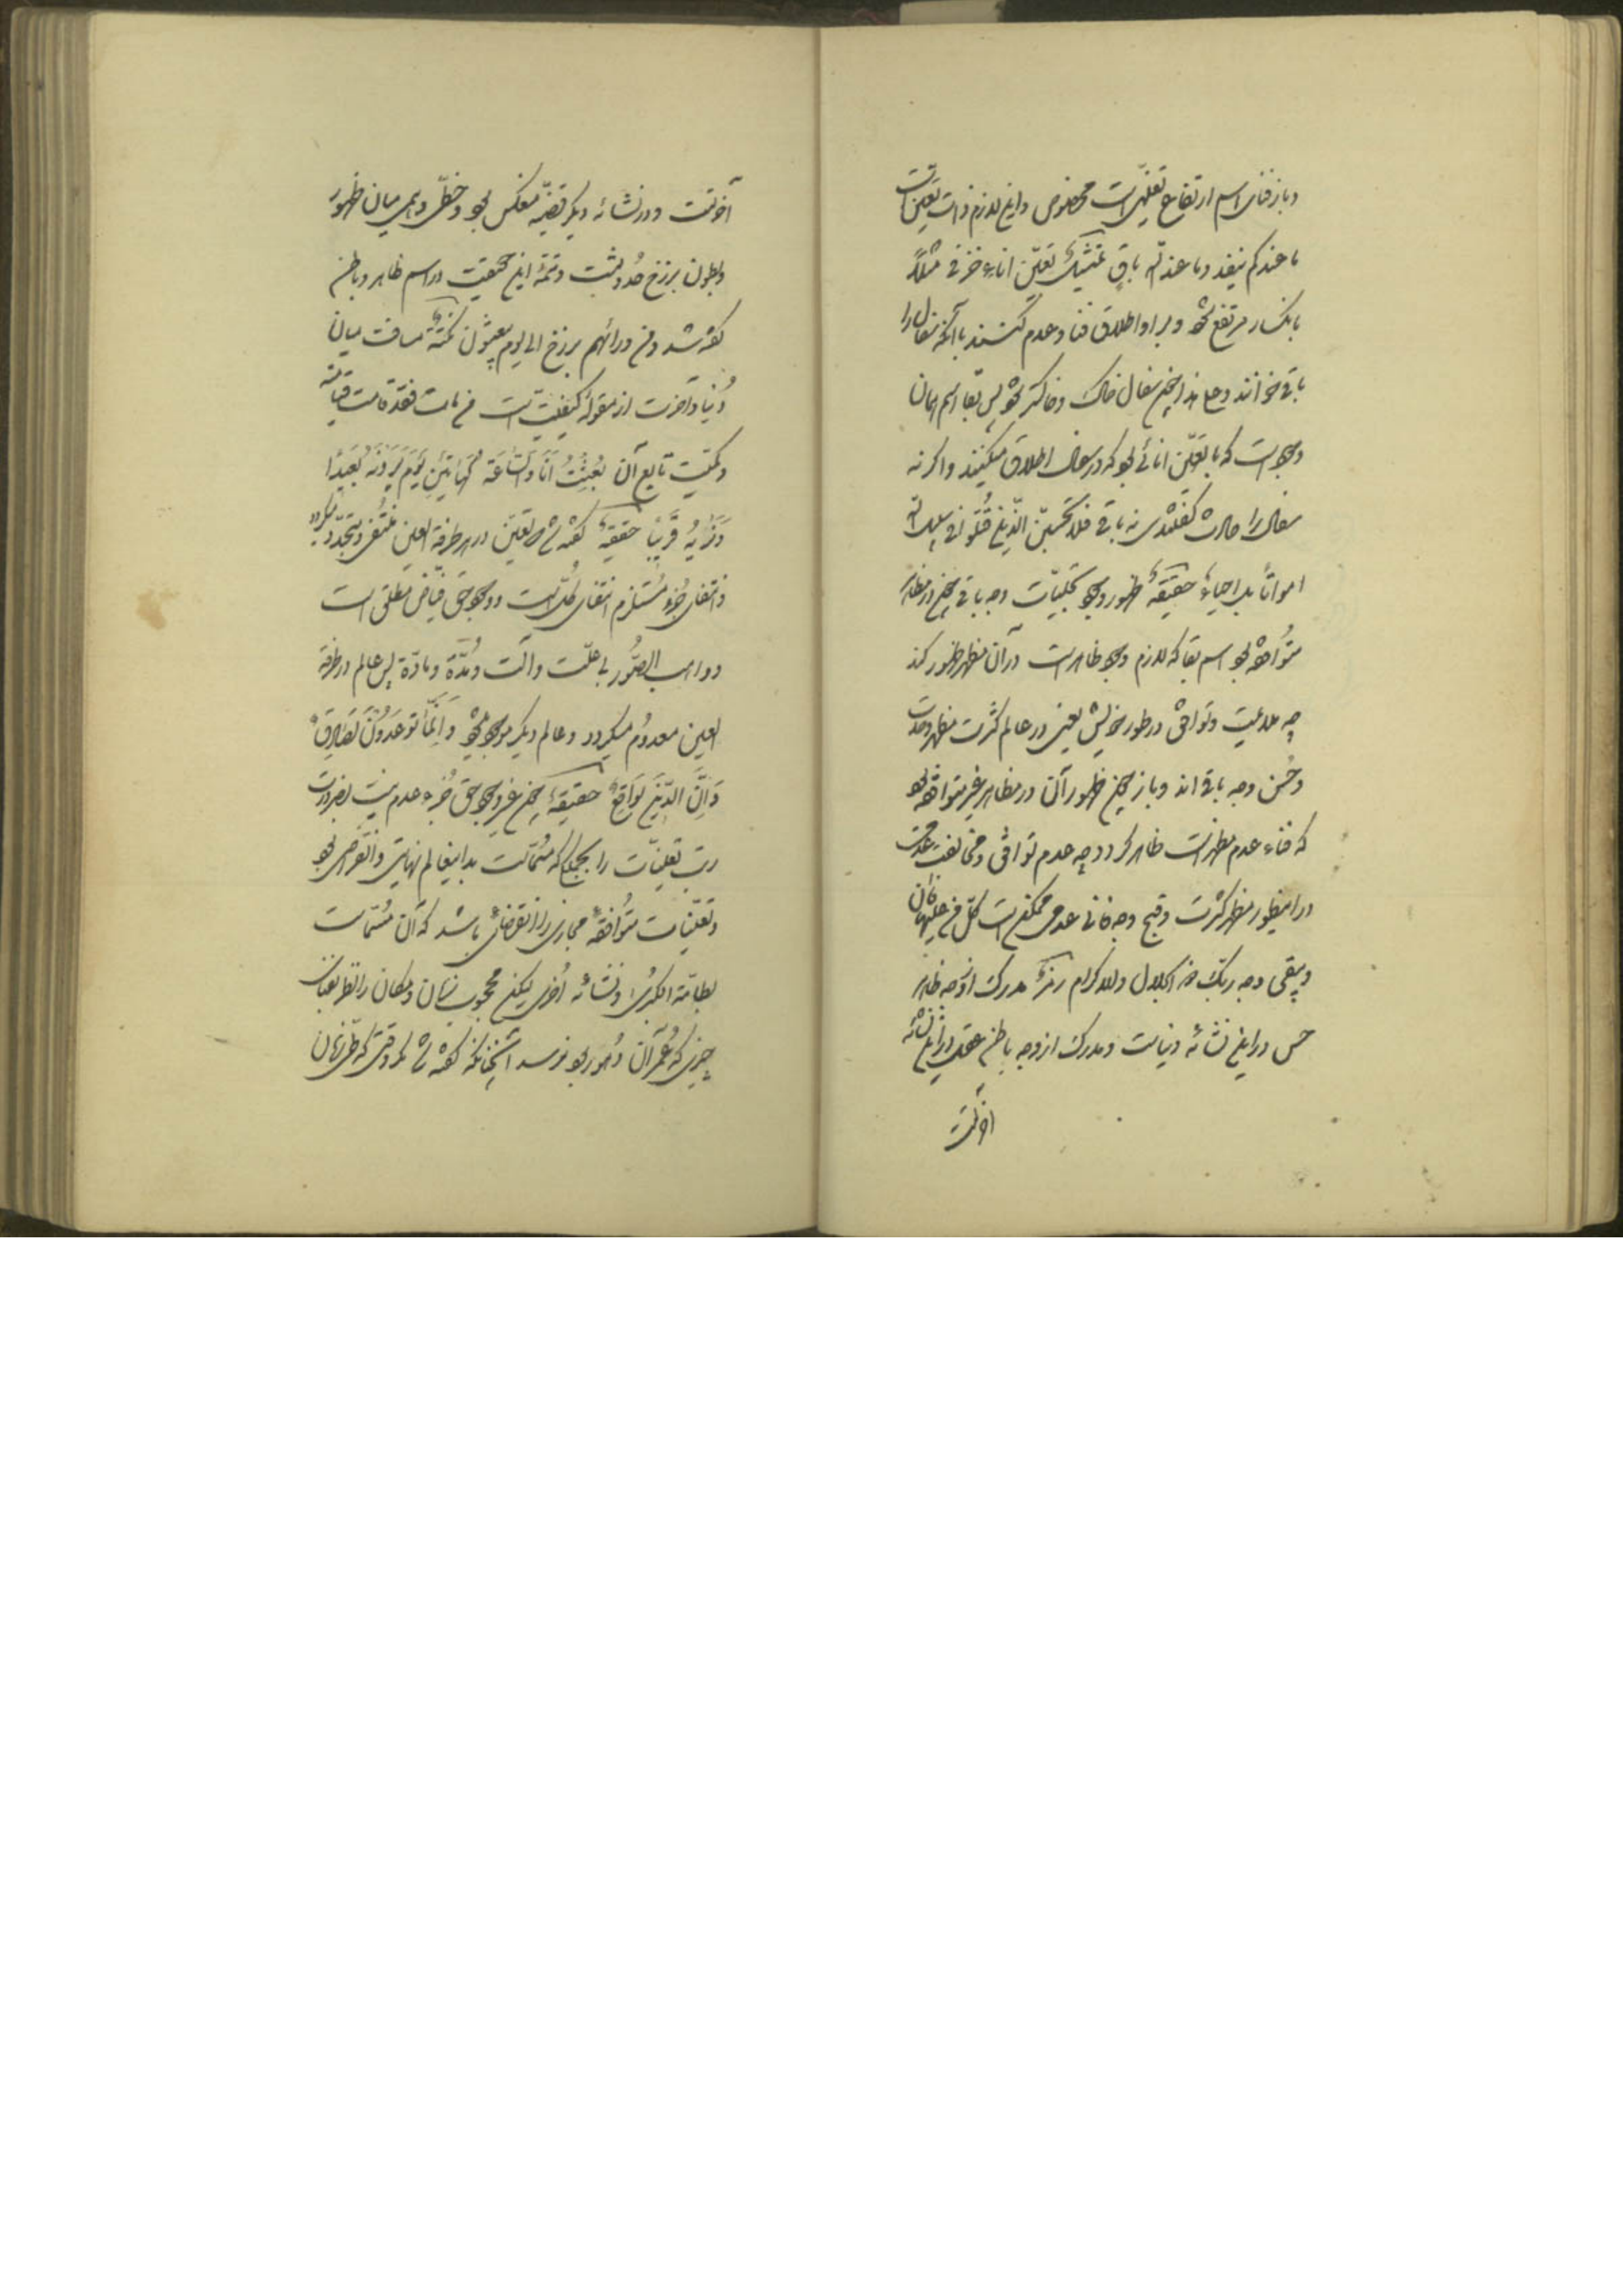 و باز فنای اسم ارتفاع تعینی است مخصوص و این لازم ذات تعینات است
ما عندکم ینفد و ما عند الله باق تمثیل تعین اناء خزفی مثلاً
بانکسار مرتفع شود و بر او اطلاق فنا و عدم کنند با آنکه سفال را
باقی خوانند و علی هذا چون سفال خاک و خاکستر شود پس بقا اسم همان
وجود است که با تعین انائی بود که در سفال اطلاق میکنند و اگر نه
سفال را حادث گفتندی نه باقی فلا تحسبن الذین قتلوا فی سبیل الله
امواتا بل احیاء حقیقة ظهور وجود تجلیات وجه باقی چون در مظاهر
متوافقه بود اسم بقا که لازم وجود ظاهر است در آن مظهر ظهور کند
چه ملاءمت و توافق در طور خویش یعنی در عالم کثرت مظهر وحدت
و حسن وجه باقی اند و باز چون ظهور آن در مظاهر غیر متوافقه بود
که فناء عدم مظهر است ظاهر گردد چه عدم توافق و مخالفت عدمیت
در این طور مظهر کثرت و قبح وجه فانی عدمی ممکن است کل من علیها فان
و یبقی وجه ربک ذو الجلال والاکرام رمز مدرک از وجه ظاهر
حس در این نشائه دنیاست و مدرک از وجه باطن عقل در این نشائه
آخرتست
آخرتست و در نشائه دیگر قضیه منعکس بود و خطی وهمی میان ظهور
و بطون برزخ حدوثیت و تتمة این تحقیق در اسم ظاهر و باطن
گفته شد و من ورائهم برزخ الی یوم یبعثون نکتة مسافت میان
دنیا و آخرت از مقوله کیفیت است من مات فقد قامت قیامته
و کمیت تابع آن بعثت انا والساعة کهاتین یوم یرونه بعیدا
و نراه قریبا حقیقة گفته شد تعین در هر طرفة العین منتفی و متجدد میگردد
و انتفای جزء مستلزم انتفای کل است و وجود حق فیاض مطلق است
و واهب الصور بی علت و آلت و مدة و مادة پس عالم در طرفة
العین معدوم میگردد و عالم دیگر موجود میشود و انما توعدون لصادق
و ان الدین لواقع حقیقة چون غیر وجود حق جزء عدم نیست بضرورت
رب تعینات را بجملگی که مسمّاست بداین عالم نهایتی و انقراضی بود
و تعینات متوافقة مجازی را انقضائی باشد که آن مسماست
بطامة الکبری و نشائه اخری لیکن محجوب زمان و مکان را نظر بغایت
چیزی که عمر آن دهور بود نرسد چنانکه گفته شد مگر وقتی که طی زمان